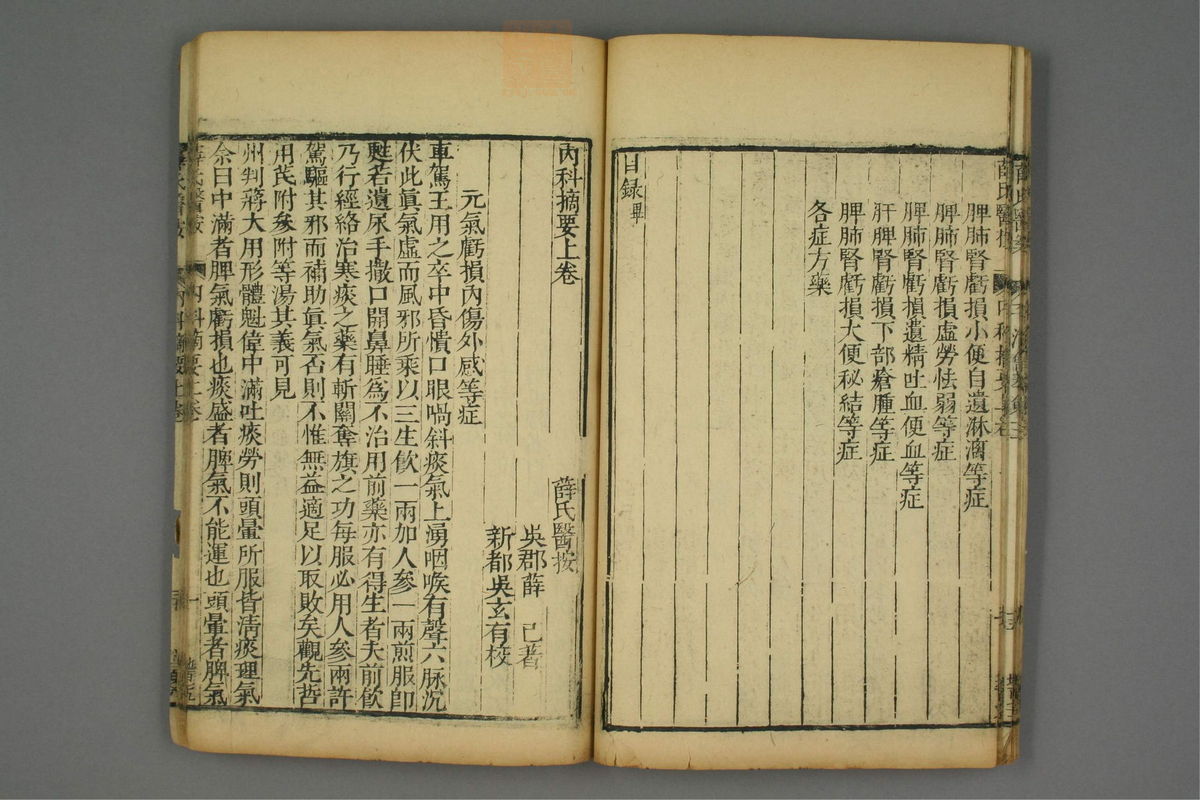 脾肺腎虧損小便自遺淋濇等症
脾肺腎虧損虛勞怯弱等症
脾肺腎虧損遺精吐血便血等症
肝脾腎虧損下部瘡腫等症
脾肺腎虧損大便秘結等症
各症方藥
目錄畢
內科摘要上卷
薛氏醫按
吳郡薛 己著
新都吳玄有校
元氣虧損內傷外感等症
車駕王用之卒中昏憒口眼喎斜痰氣上湧咽喉有聲六脉沉
伏此眞氣虛而風邪所乘以三生飮一兩加人參一兩煎服卽
甦若遺尿手撒口開鼻鼾爲不治用前藥亦有得生者夫前飮
乃行經絡治寒痰之藥有斬關奪旗之功每服必用人參兩許
駕驅其邪而補助眞氣否則不惟無益適足以取敗矣觀先哲
用芪附參附等湯其義可見
州判蔣大用形體魁偉中滿吐痰勞則頭暈所服皆淸痰理氣
余曰中滿者脾氣虧損也痰盛者脾氣不能運也頭暈者脾氣
薛氏醫按
內科摘要上卷
一